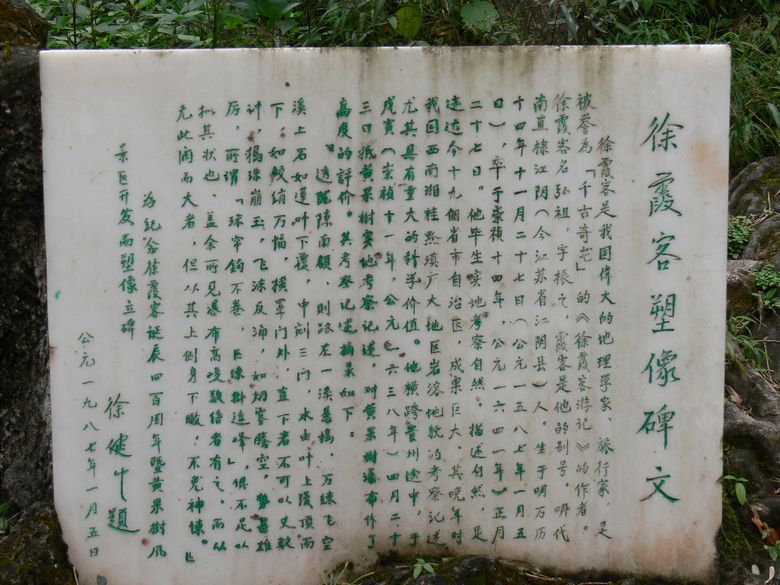 徐霞客塑像碑文
徐霞客是我国偉大的地理学家、旅行家，是
被誉为「千古奇书」的《徐霞客游记》的作者。
徐霞客名弘祖，字振之，霞客是他的别号。明代
南直隶江阴（今江苏省江阴县）人。生于明万历
十四年十一月二十七日（公元一五八七年一月五
日），卒于崇祯十四年（公元一六四一年）正月
二十七日。他毕生实地考察自然，描述自然，足
迹达今十九個省市自治区，成果巨大。其晚年对
我国西南湘桂黔滇广大地区岩溶地貌的考察记述
尤其具有重大的科学价值。他横跨貴州途中，于
戊寅（崇祯十一年公元一六三八年）四月二十
三日抵黄果树实地考察记述，对黄果树瀑布作了
高度的評价。其考察记述摘录如下：
「透陇隙南顧，則路左一溪悬搗，万练飞空
溪上石如莲叶下覆，中剜三门，水由叶上漫顶而
下，如鲛绡万幅，横罩门外，直下者不可以丈数
计，搗珠崩玉，飞沫反涌，如烟雾腾空，势甚雄
厉，所谓「珠帘钩不卷，匹练掛遥峰」，俱不足以
拟其状也。盖余所见瀑布高峻数倍者有之，而从
无此阔而大者，但从其上侧身下瞰，不免神悚。」
为纪念徐霞客诞辰四百周年暨黄果树风
景区开发而塑像立碑
徐健中題
公元一九八七年一月五日